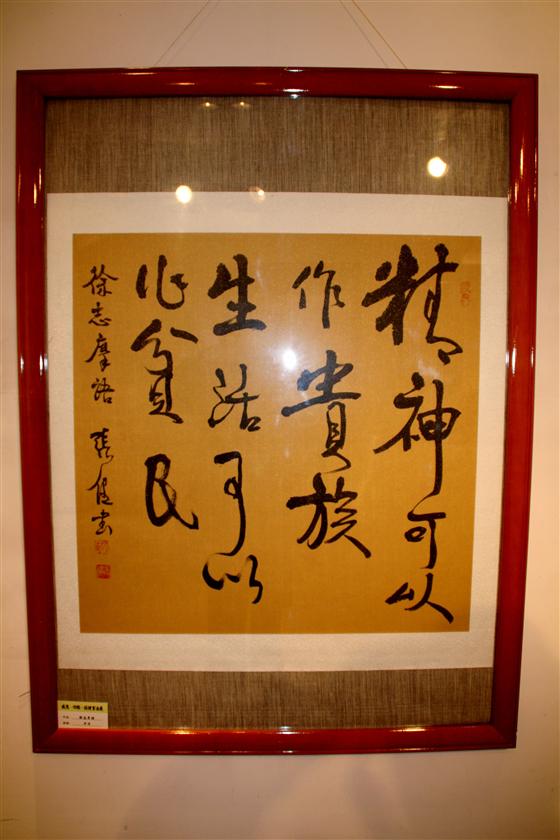 精神可以
作貴族
生活可以
作貧民
徐志摩語 張健書